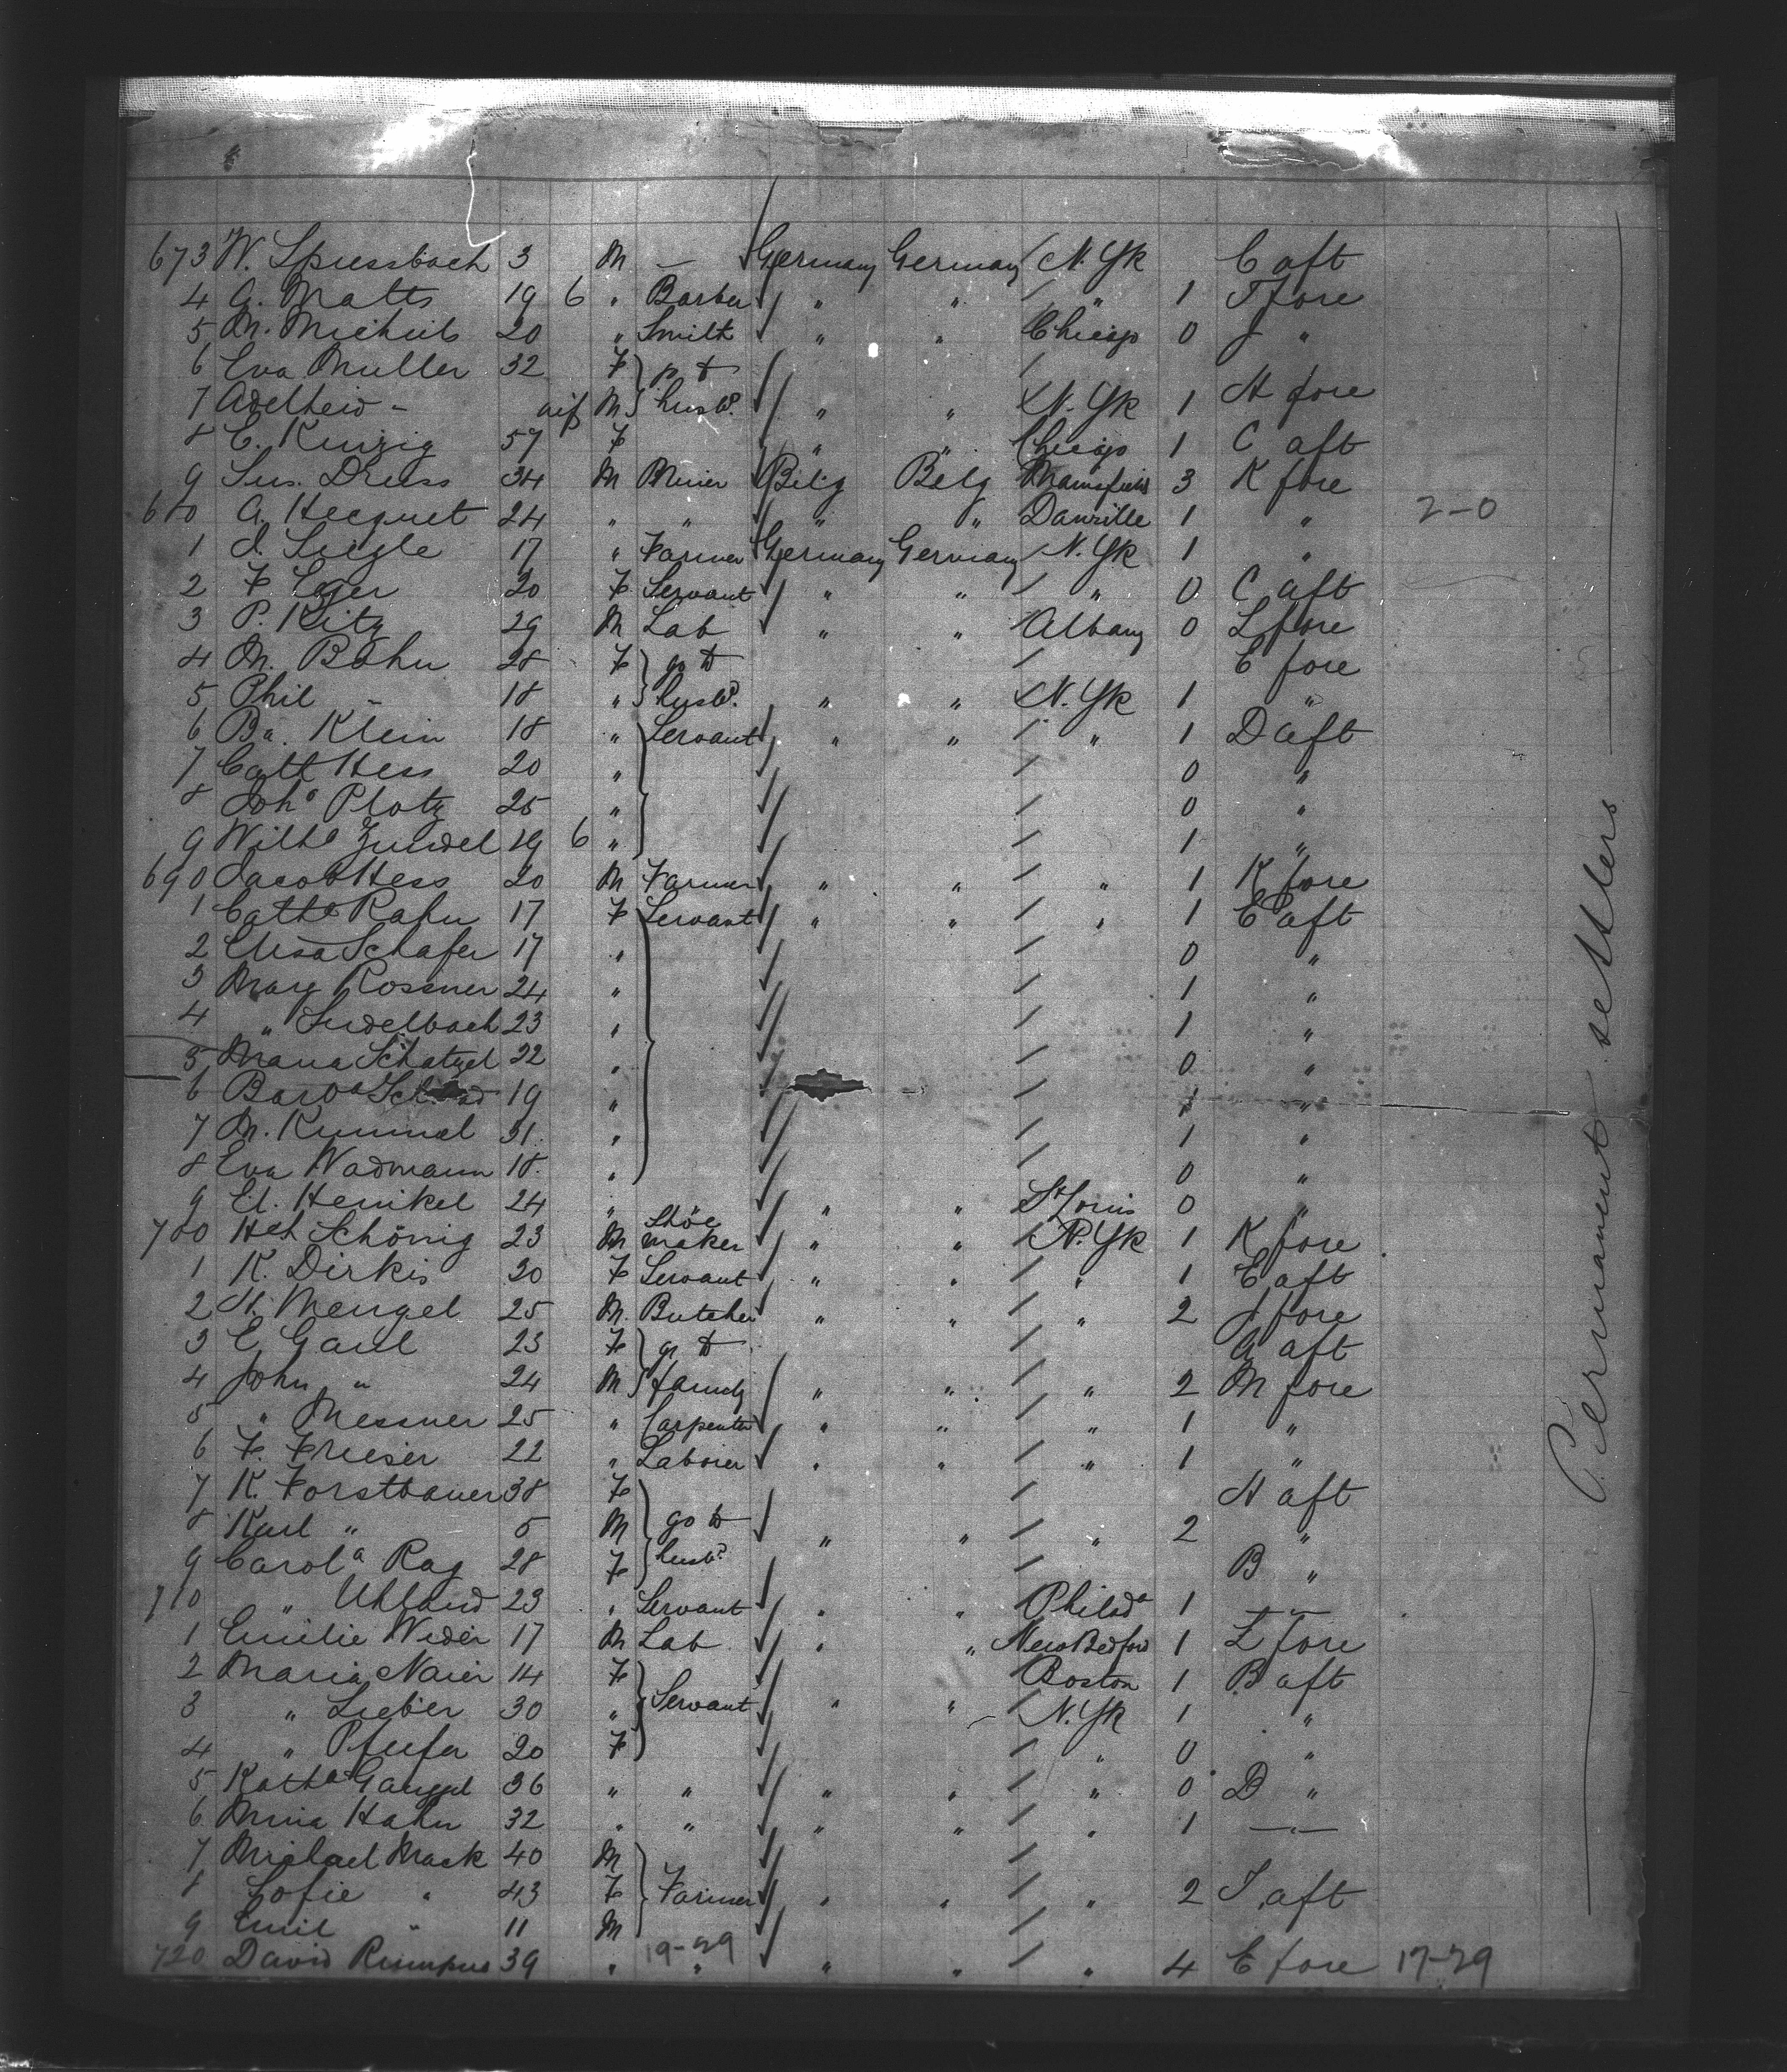 673 W. Spiessbach 3 M — Germany Germany N. Yk C aft
4 G. Matts 19 6 " Barber " " " 1 J fore
5 M. 20 " Smith " " Chicago 0 J "
6 Eva Muller 32 F go to H fore
7 Adelheid - inf M husbd. " " N. Yk 1
8 C. Kinzig 57 F " " Chicago 1 C aft
9 Jus. Druss 34 M Miner Belg Belg Mansfield 3 K fore
680 A. Hecquet 24 " " " " Danville 1 " 2-0
1 J. Siegle 17 " Farmer Germany Germany N. Yk 1 "
2 F. Eger 20 F Servant " " " 0 C aft
3 P. Kitz 29 M Lab " " Albany 0 L fore
4 M. Böhn 28 F go to E fore
5 Phil - 18 " husbd. " " N. Yk 1 "
6 Ba. Klein 18 " Servant " " " 1 D aft
7 Cath Hess 20 " 0 "
8 Joha Plotz 25 " 0 "
9 Wilha Zundel 19 6 " 1 "
690 Jacob Hess 20 M Farmer " " " 1 K fore
1 Catha Rahn 17 F Servant " " " 1 E aft
2 Elisa Schafer 17 " 0 "
3 Marg Rossner 24 " 1 "
4 " Sudelbach 23 " 1 "
5 Maria Schatzel 22 " 0 "
6 Barba 19 " 1 "
7 M. Kummel 31 " 1 "
8 Eva Wadmann 18 " 0 "
9 El. Henikel 24 " " " St Louis 0 "
700 Hch Schönig 23 M Shoe maker " " N. Yk 1 K fore
1 K. Dirkis 20 F Servant " " " 1 E aft
2 H. Mengel 25 M Butcher " " " 2 J fore
3 C Gaul 23 F go to G aft
4 John " 24 M family " " " 2 M fore
5 " Messner 25 " Carpenter " " " 1 "
6 F. Frieser 22 " Laborer " " " 1 "
7 K. Forstbauer 38 F H aft
8 Karl " 5 M go to " " " 2 "
9 Carola Ray 28 F husbd. B "
710 " Uhland 23 " Servant " " Philada 1 — " —
1 Emilie Weder 17 M Lab " " New Bedford 1 L fore
2 Maria Naier 14 F Boston 1 B aft
3 " Lieber 30 " Servant " " N. Yk 1 "
4 " Pfeifer 20 F " 0 "
5 Katha 36 " " " " " 0 D "
6 Mina Hahn 32 " " " " " 1 — " —
7 Michael Mack 40 M
8 Sofie " 43 F Farmer " " " 2 J aft
9 Emil " 11 M
19-29
720 David Rumpus 39 " " " " " 4 E fore 17-29
Permanent settlers